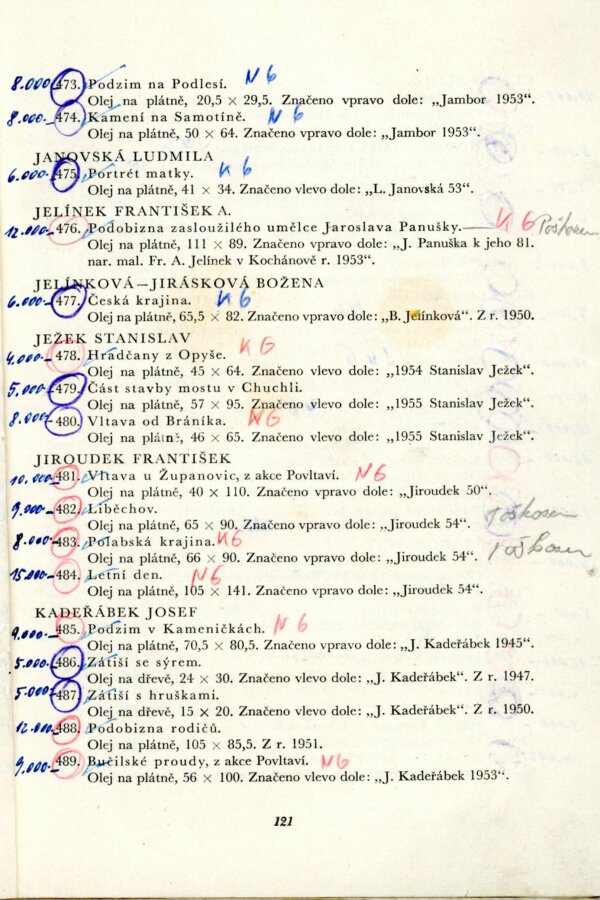 8.000·- 473. Podzim na Podlesí. N 6
Olej na plátně, 20,5 × 29,5. Značeno vpravo dole: „Jambor 1953“.
8.000·- 474. Kamení na Samotíně. N 6
Olej na plátně, 50 × 64. Značeno vpravo dole: „Jambor 1953“.
JANOVSKÁ LUDMILA
6.000·- 475. Portrét matky. K 6
Olej na plátně, 41 × 34. Značeno vlevo dole: „L. Janovská 53“.
JELÍNEK FRANTIŠEK A.
12.000·- 476. Podobizna zasloužilého umělce Jaroslava Panušky. K 6 Poškozen
Olej na plátně, 111 × 89. Značeno vpravo dole: „J. Panuška k jeho 81.
nar. mal. Fr. A. Jelínek v Kochánově r. 1953“.
JELÍNKOVÁ—JIRÁSKOVÁ BOŽENA
6.000·- 477. Česká krajina. K 6
Olej na plátně, 65,5 × 82. Značeno vpravo dole: „B. Jelínková“. Z r. 1950.
JEŽEK STANISLAV
4.000·- 478. Hradčany z Opyše. K 6
Olej na plátně, 45 × 64. Značeno vpravo dole: „1954 Stanislav Ježek“.
5.000·- 479. Část stavby mostu v Chuchli.
Olej na plátně, 57 × 95. Značeno vpravo dole: „1955 Stanislav Ježek“.
8.000·- 480. Vltava od Bráníka. N 6
Olej na plátně, 46 × 65. Značeno vpravo dole: „1955 Stanislav Ježek“.
JIROUDEK FRANTIŠEK
10.000·- 481. Vltava u Županovic, z akce Povltaví. N 6
Olej na plátně, 40 × 110. Značeno vpravo dole: „Jiroudek 50“.
9.000·- 482. Liběchov.
Olej na plátně, 65 × 90. Značeno vpravo dole: „Jiroudek 54“. Poškozen
8.000·- 483. Polabská krajina. K 6
Olej na plátně, 66 × 90. Značeno vpravo dole: „Jiroudek 54“. Poškozen
15.000·- 484. Letní den. N 6
Olej na plátně, 105 × 141. Značeno vlevo dole: „Jiroudek 54“.
KADEŘÁBEK JOSEF
9.000·- 485. Podzim v Kameničkách. N 6
Olej na plátně, 70,5 × 80,5. Značeno vpravo dole: „J. Kadeřábek 1945“.
5.000·- 486. Zátiší se sýrem.
Olej na dřevě, 24 × 30. Značeno vlevo dole: „J. Kadeřábek“. Z r. 1947.
5.000·- 487. Zátiší s hruškami.
Olej na dřevě, 15 × 20. Značeno vlevo dole: „J. Kadeřábek“. Z r. 1950.
12.000·- 488. Podobizna rodičů.
Olej na plátně, 105 × 85,5. Z r. 1951.
9.000·- 489. Bučilské proudy, z akce Povltaví. N 6
Olej na plátně, 56 × 100. Značeno vlevo dole: „J. Kadeřábek 1953“.
121